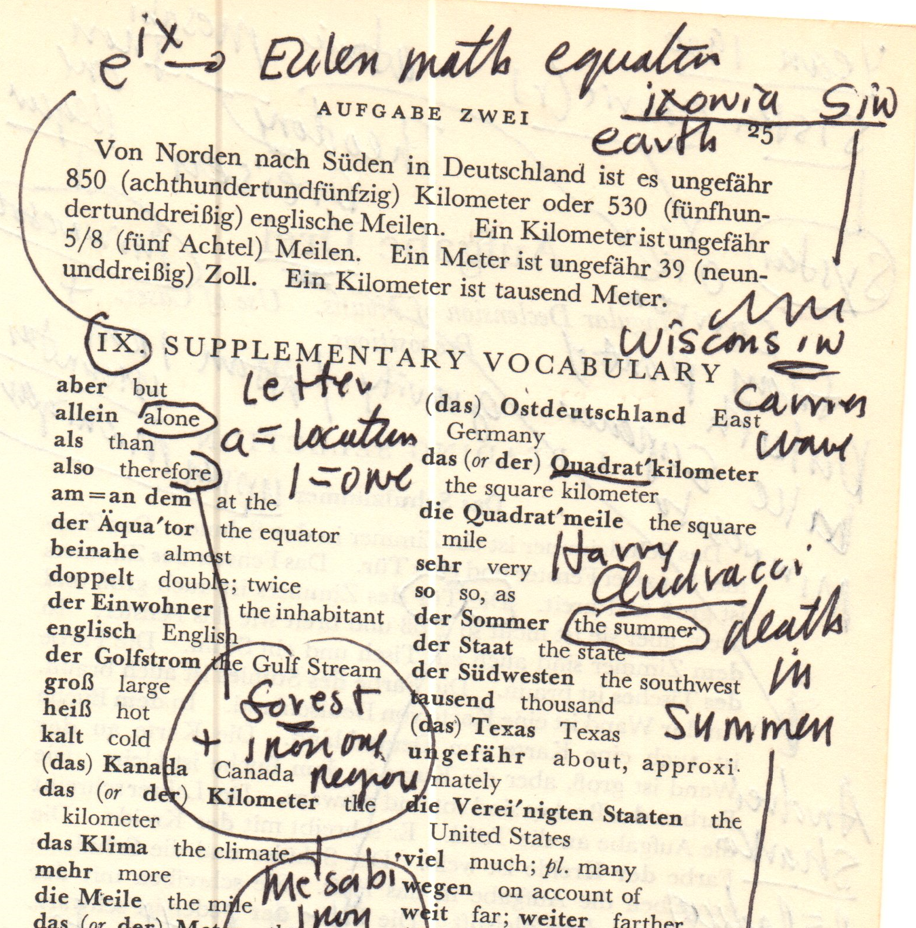 e^ix → Eulen math equation
AUFGABE ZWEI
ixonia Siw
earth 25
Von Norden nach Süden in Deutschland ist es ungefähr
850 (achthundertundfünfzig) Kilometer oder 530 (fünfhun-
dertunddreißig) englische Meilen. Ein Kilometer ist ungefähr
5/8 (fünf Achtel) Meilen. Ein Meter ist ungefähr 39 (neun-
unddreißig) Zoll. Ein Kilometer ist tausend Meter.
Wisconsin
IX. SUPPLEMENTARY VOCABULARY
Letter
a = location
1 = one
aber but
allein alone
als than
also therefore
am = an dem at the
der Äqua'tor the equator
beinahe almost
doppelt double; twice
der Einwohner the inhabitant
englisch English
der Golfstrom the Gulf Stream
groß large
heiß hot
kalt cold
(das) Kanada Canada
das (or der) Kilometer the
kilometer
das Klima the climate
mehr more
die Meile the mile
das (or der)
forest
+ iron ore
region
Mesabi
iron
Carries
wave
(das) Ostdeutschland East
Germany
das (or der) Quadrat'kilometer
the square kilometer
die Quadrat'meile the square
mile
sehr very
so so, as
der Sommer the summer
der Staat the state
der Südwesten the southwest
tausend thousand
(das) Texas Texas
ungefähr about, approxi.
mately
die Verei'nigten Staaten the
United States
viel much; pl. many
wegen on account of
weit far; weiter farther
Harry
Quadracci
death
in
Summen